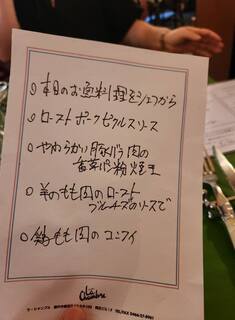 ○本日のお魚料理をシェフから
○ローストポークピクルスソース
○やわらかい豚バラ肉の
香草パン粉焼き
○羊のもも肉のロースト
ブルーチーズのソースで
○鶏もも肉のコンフィ
La Chambre